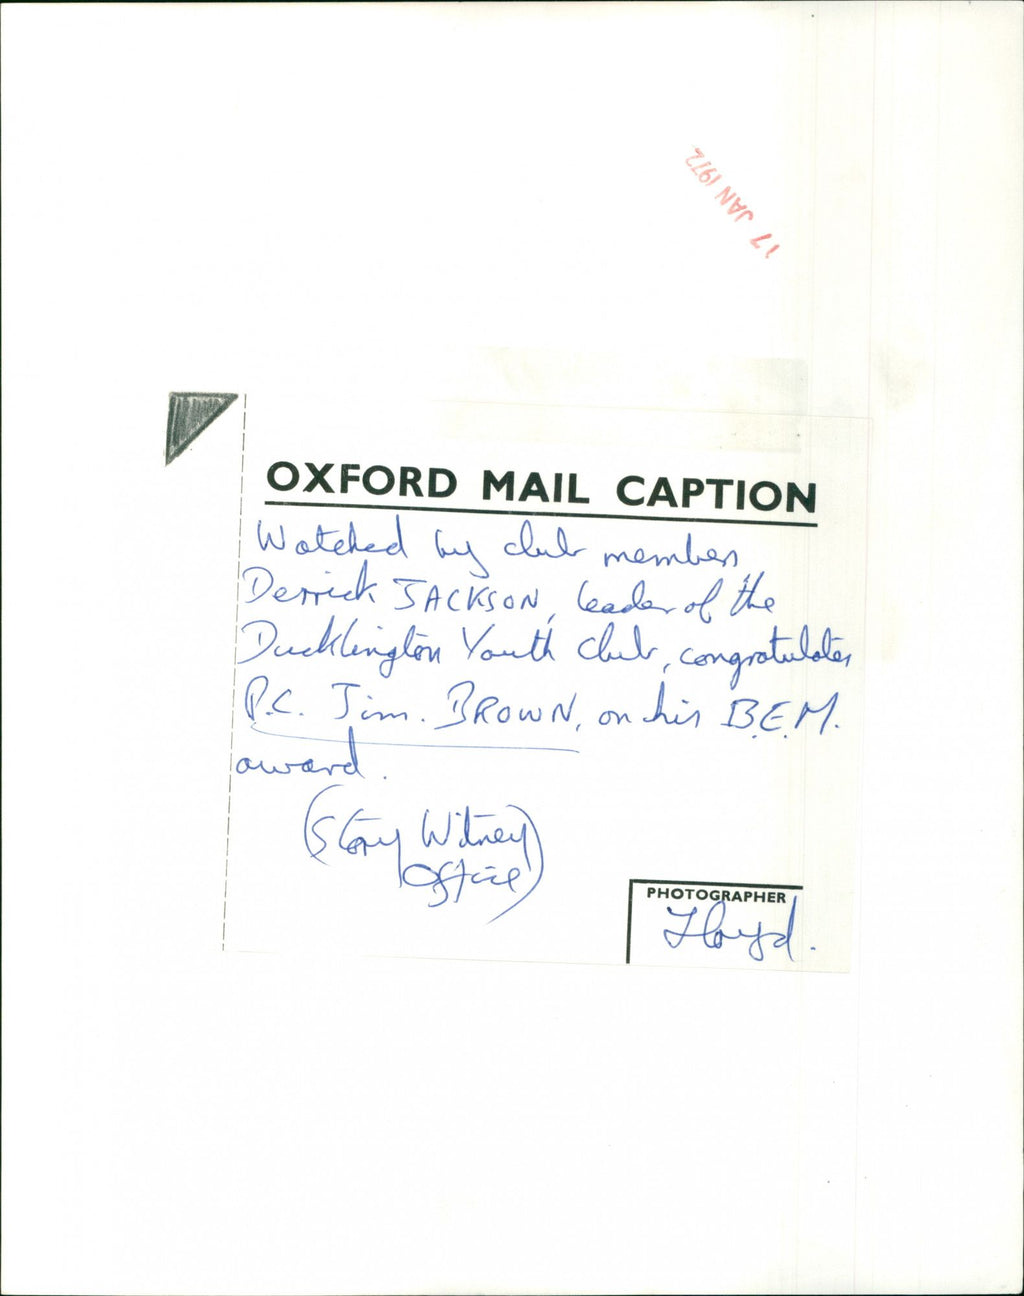 17 JAN 1972
OXFORD MAIL CAPTION
Watched by club members,
Derrick JACKSON, leader of the
Ducklington Youth Club, congratulates
P.C. Jim. BROWN, on his B.E.M.
award.
(Story Witney
Office)
PHOTOGRAPHER
Lloyd.